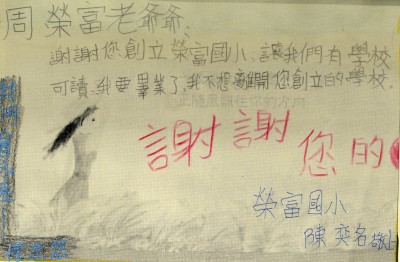 周榮富老爺爺、
謝謝您創立榮富國小,讓我們有學校
可讀,我要畢業了,我不想離開您創立的學校。
謝謝您的
榮富國小
陳奕名敬上